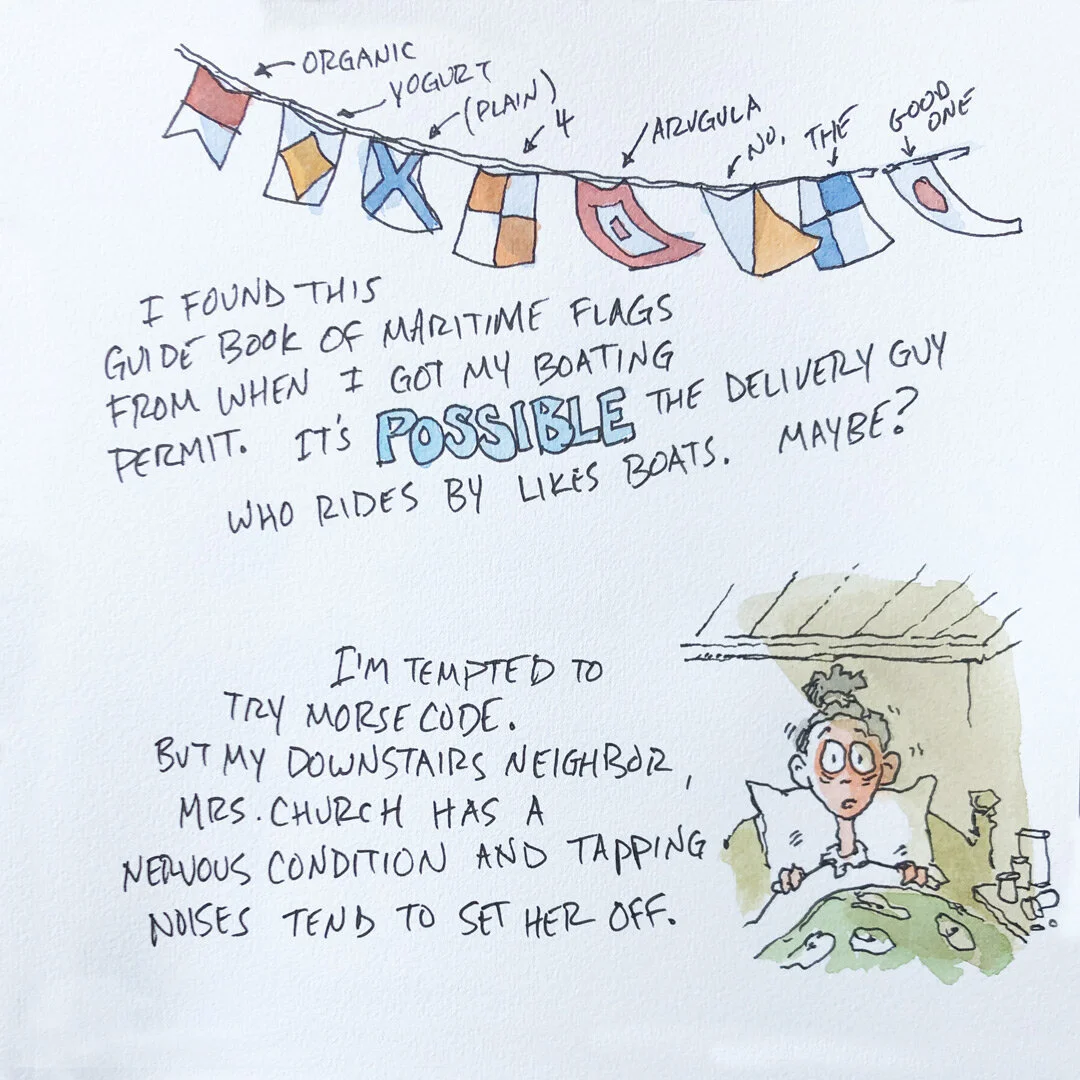 ORGANIC
YOGURT
(PLAIN)
4
ARUGULA
NO,
THE
GOOD
ONE
I FOUND THIS
GUIDE BOOK OF MARITIME FLAGS
FROM WHEN I GOT MY BOATING
PERMIT. IT'S POSSIBLE THE DELIVERY GUY
WHO RIDES BY LIKES BOATS. MAYBE?
I'M TEMPTED TO
TRY MORSE CODE.
BUT MY DOWNSTAIRS NEIGHBOR,
MRS. CHURCH HAS A
NERVOUS CONDITION AND TAPPING
NOISES TEND TO SET HER OFF.